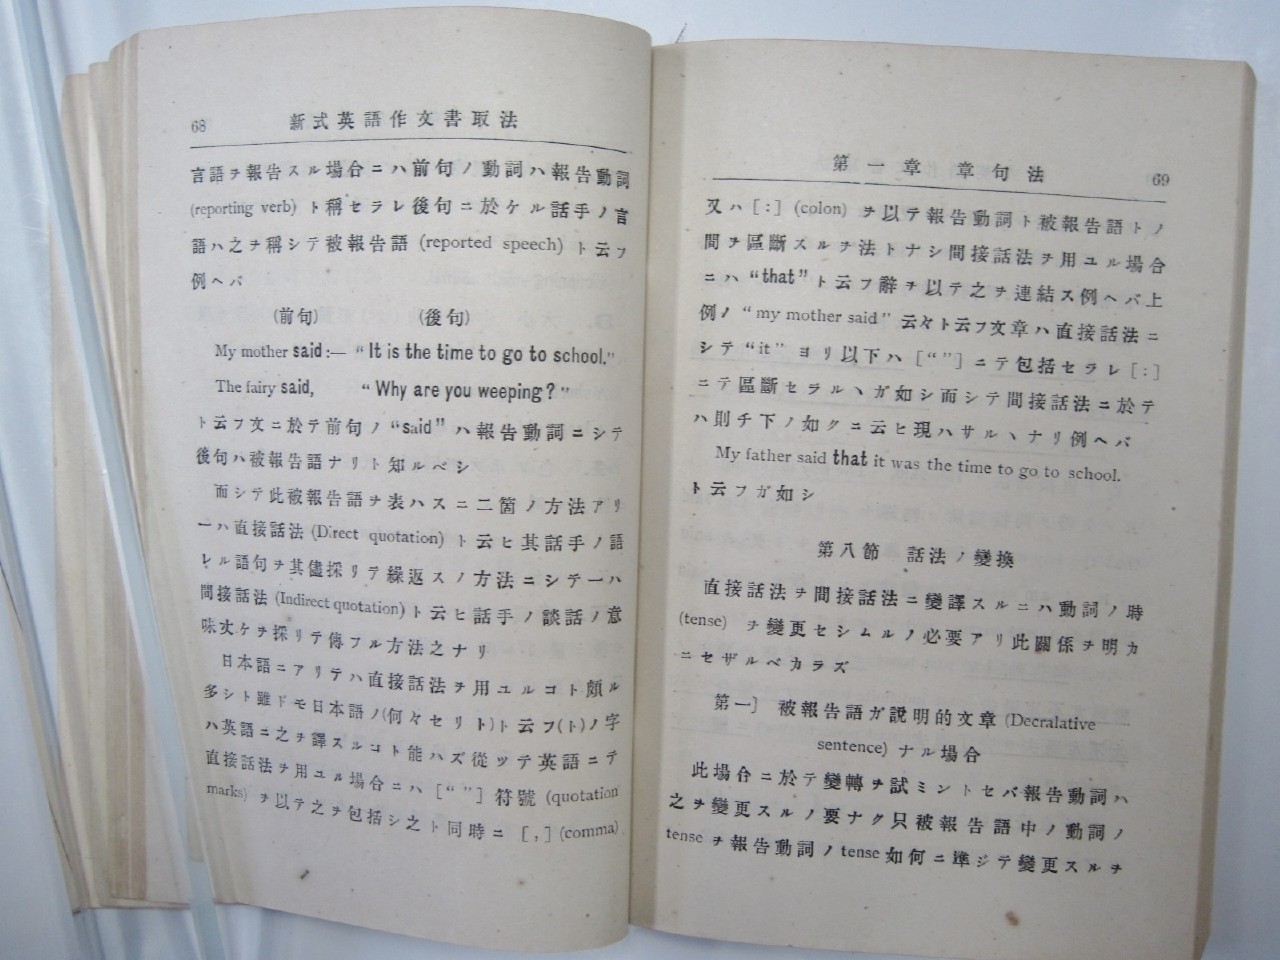 68 新式英語作文書取法
言語ヲ報告スル場合ニハ前句ノ動詞ハ報告動詞
(reporting verb) ト稱セラレ後句ニ於ケル話手ノ言
語ハ之ヲ稱シテ被報告語 (reported speech) ト云フ
例ヘバ
(前句) (後句)
My mother said:— “It is the time to go to school.”
The fairy said, “Why are you weeping?”
ト云フ文ニ於テ前句ノ “said” ハ報告動詞ニシテ
後句ハ被報告語ナリト知ルベシ
而シテ此被報告語ヲ表ハスニ二箇ノ方法アリ
一ハ直接話法 (Direct quotation) ト云ヒ其話手ノ語
レル語句ヲ其儘採リテ繰返スノ方法ニシテ一ハ
間接話法 (Indirect quotation) ト云ヒ話手ノ談話ノ意
味丈ケヲ採リテ傳フル方法之ナリ
日本語ニアリテハ直接話法ヲ用ユルコト頗ル
多シト雖ドモ日本語ノ(何々セリト)ト云フ(ト)ノ字
ハ英語ニ之ヲ譯スルコト能ハズ從ツテ英語ニテ
直接話法ヲ用ユル場合ニハ [“ ”] 符號 (quotation
marks) ヲ以テ之ヲ包括シ之ト同時ニ [,] (comma)
第一章 章句法 69
又ハ [:] (colon) ヲ以テ報告動詞ト被報告語トノ
間ヲ區斷スルヲ法トナシ間接話法ヲ用ユル場合
ニハ “that” ト云フ辭ヲ以テ之ヲ連結ス例ヘバ上
例ノ “my mother said” 云々ト云フ文章ハ直接話法ニ
シテ “it” ヨリ以下ハ [“ ”] ニテ包括セラレ [:]
ニテ區斷セラルヽガ如シ而シテ間接話法ニ於テ
ハ則チ下ノ如クニ云ヒ現ハサルヽナリ例ヘバ
My father said that it was the time to go to school.
ト云フガ如シ
第八節 話法ノ變換
直接話法ヲ間接話法ニ變譯スルニハ動詞ノ時
(tense) ヲ變更セシムルノ必要アリ此關係ヲ明カ
ニセザルベカラズ
第一] 被報告語ガ説明的文章 (Decralative
sentence) ナル場合
此場合ニ於テ變轉ヲ試ミントセバ報告動詞ハ
之ヲ變更スルノ要ナク只被報告語中ノ動詞ノ
tense ヲ報告動詞ノ tense 如何ニ準ジテ變更スルヲ